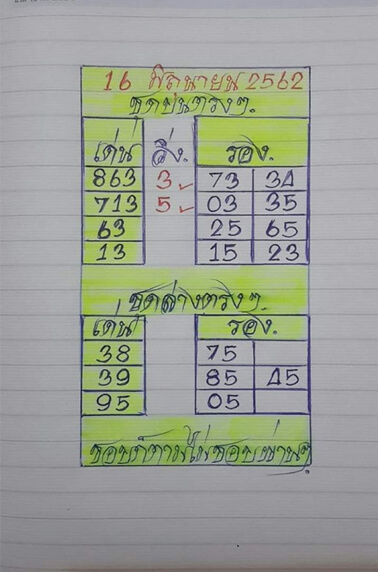 16 มิถุนายน 2562
ชุดบนตรงๆ.
เด่น วิ่ง. รอง.
863 3 73 34
713 5 03 35
63 25 65
13 15 23
ชุดล่างตรงๆ.
เด่น รอง.
38 75
39 85 45
95 05
ชอบก็ตามไม่ชอบผ่านๆ